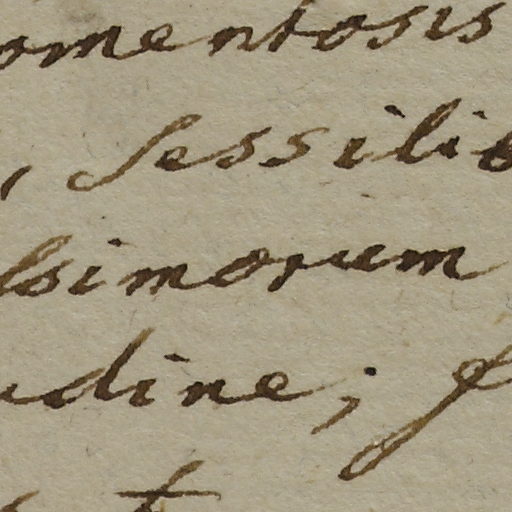 omentosis
, sessilib
lsimorum
udine; f